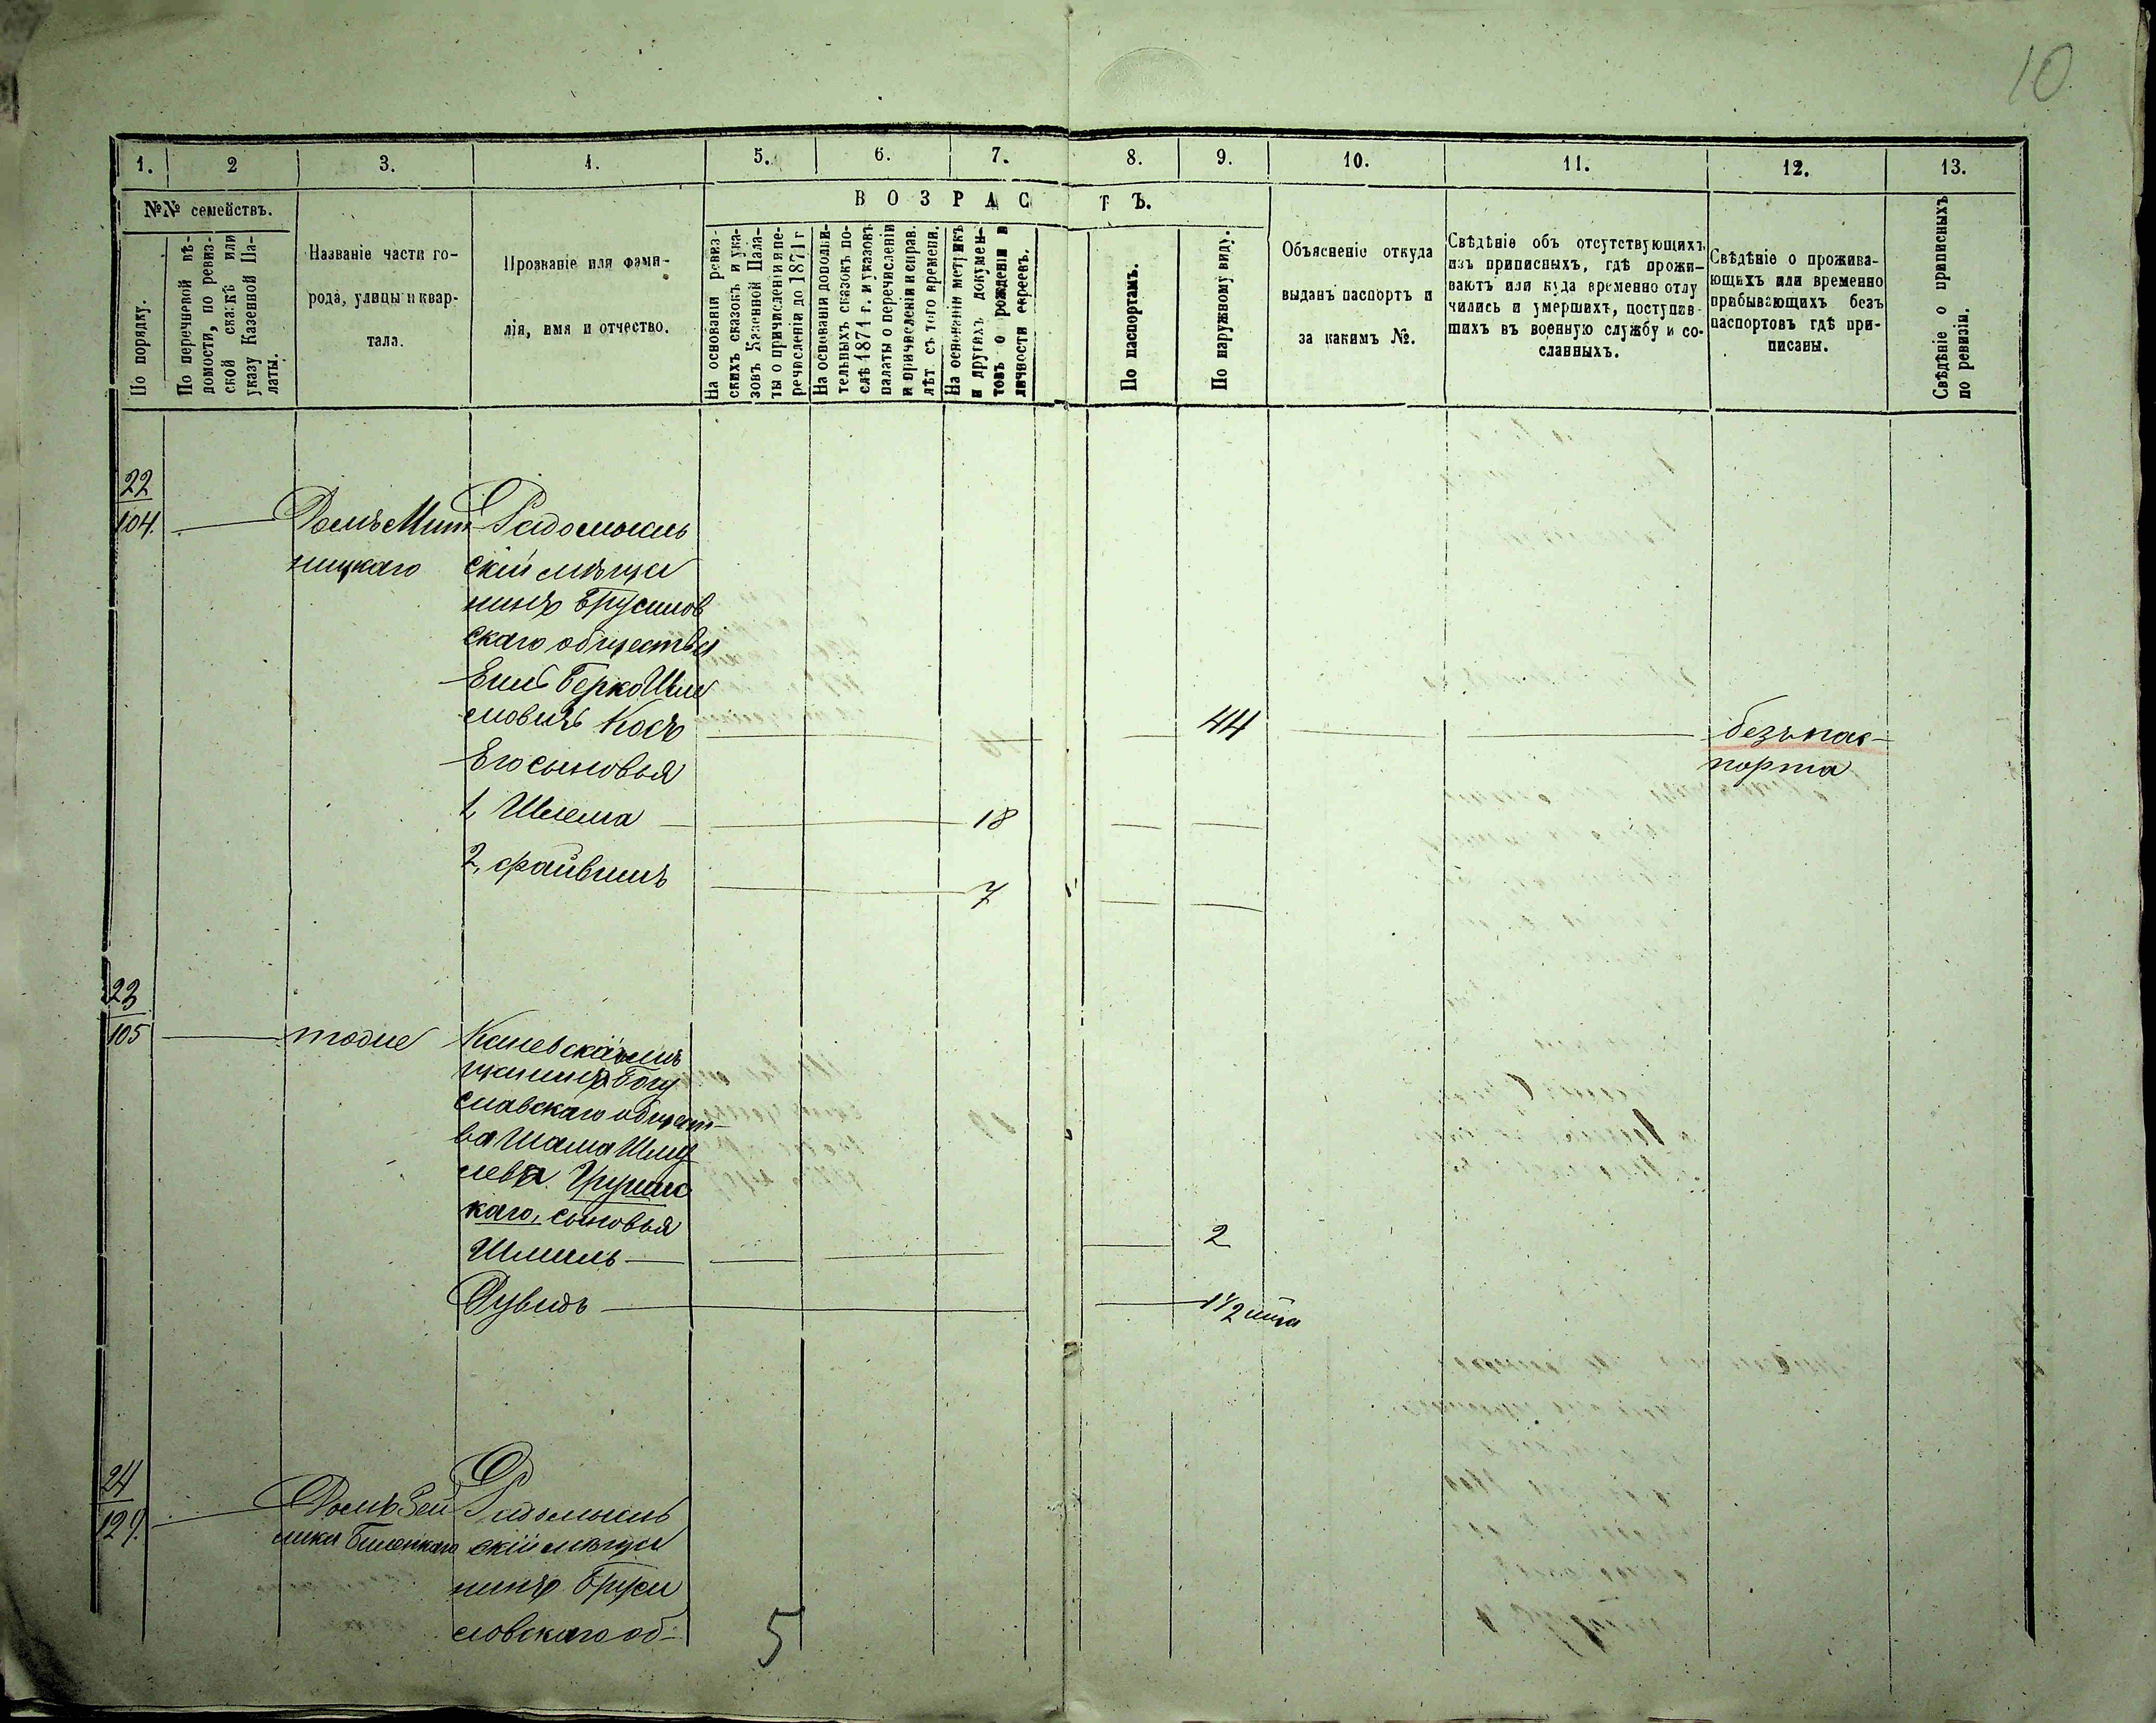 10
1. 2 3. 4. 5. 6. 7. 8. 9. 10. 11. 12. 13.
№№ семействъ.
По порядку.
По перечневой вѣ-
домости, по ревиз-
ской сказкѣ или
указу Казенной Па-
латы.
Названіе части го-
рода, улицы и квар-
тала.
Прозваніе или фами-
лія, имя и отчество.
ВОЗРАСТЪ.
На основаніи ревиз-
скихъ сказокъ и ука-
зовъ Казенной Пала-
ты о причисленіи и пе-
речисленіи до 1871 г
На основаніи дополни-
тельныхъ сказокъ по-
слѣ 1871 г. и указовъ
палаты о перечисленіи
и причисленіи и справ.
лѣт. съ того времени.
На основаніи метрикъ
и другихъ докумен-
товъ о рожденіи и
личности евреевъ.
По паспортамъ.
По наружному виду.
Объясненіе откуда
выданъ паспортъ и
за какимъ №.
Свѣдѣніе объ отсутствующихъ
изъ приписныхъ, гдѣ прожи-
ваютъ или куда временно отлу
чились и умершихъ, поступив-
шихъ въ военную службу и со-
сланныхъ.
Свѣдѣніе о прожива-
ющихъ или временно
прибывающихъ безъ
паспортовъ гдѣ при-
писаны.
Свѣдѣніе о приписныхъ
по ревизіи.
22
104.
Домъ Мит
ницкаго
Радомысль
скій мѣща
нинъ Брусилов
скаго общества
Ель Берко Шле
мовичъ Косъ
44
безъ пас-
порта
Его сыновья
1, Шлема
18
2, Файвишъ
7
23
105
тоже
Каневскій мѣ
щанинъ Богу
славскаго общест-
ва Шама Шму
лева Грушев
каго, сыновья
Шмиль
2
Дувидъ
1 1/2 мѣсца
24
129.
Домъ Зей
лика Биленкаго
Радомысль
скій мѣща
нинъ Бруси
ловскаго об-
5